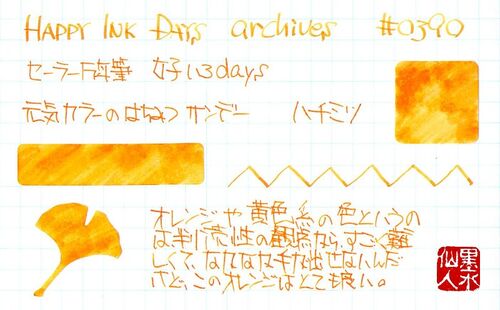 HAPPY INK DAYS archives #0390
セーラー万年筆 好い3days
元気カラーのはちみつサンデー ハチミツ
オレンジや黄色系の色というの
は判読性の観点から、すごく難
しくて、なかなか手が出せないんだ
けど、このオレンジはとても良い。
墨水
仙人